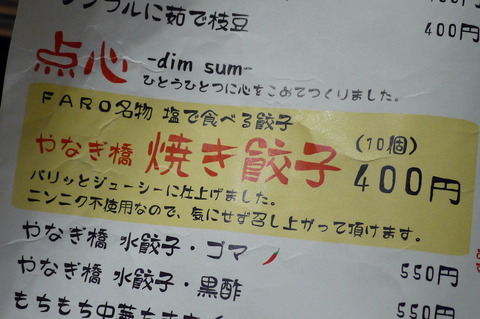 シンプルに茹で枝豆 400円
点心 -dim sum-
ひとつひとつに心をこめてつくりました。
FARO名物 塩で食べる餃子
やなぎ橋 焼き餃子 (10個) 400円
パリッとジューシーに仕上げました。
ニンニク不使用なので、気にせず召し上がって頂けます。
やなぎ橋 水餃子・ゴマ 550円
やなぎ橋 水餃子・黒酢 550円
もちもち中華ちまき